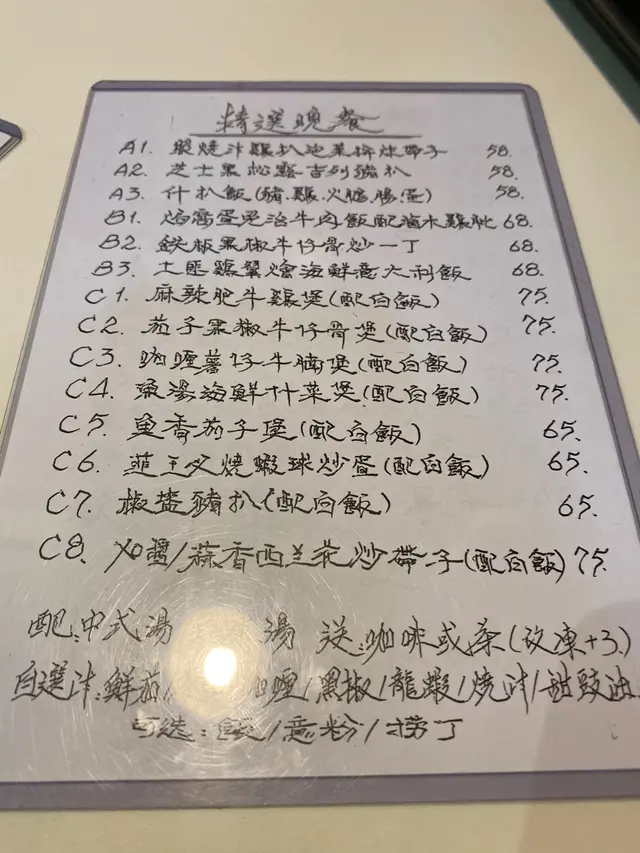 精選晚餐
A1. 照燒汁雞扒泡菜拼炸帶子 58.
A2. 芝士黑松露吉列豬扒 58.
A3. 什扒飯(豬.雞.火腿腸.蛋) 58.
B1. 焗窩蛋免治牛肉飯配滷水雞髀 68.
B2. 鉄板黑椒牛仔骨炒一丁 68.
B3. 土匪雞翼燴海鮮意大利飯 68.
C1. 麻辣肥牛雞煲(配白飯) 75.
C2. 茄子黑椒牛仔骨煲(配白飯) 75.
C3. 咖喱薯仔牛腩煲(配白飯) 75.
C4. 魚湯海鮮什菜煲(配白飯) 75.
C5. 魚香茄子煲(配白飯) 65.
C6. 韮王叉燒蝦球炒蛋(配白飯) 65.
C7. 椒鹽豬扒(配白飯) 65.
C8. XO醬/蒜香西兰花炒帶子(配白飯) 75.
配:中式湯 湯 送:咖啡或茶(改凍+3.)
自選汁:鮮茄/ 咖喱/黑椒/龍蝦/燒汁/豉油
可选:飯/意粉/捞丁